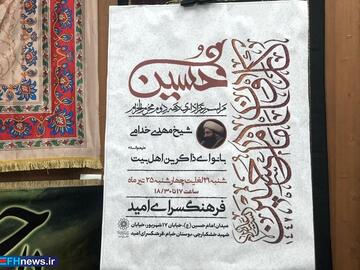 حسین
مراسم عزاداری دهه دوم محرم الحرام
شیخ مهدی خدامی
با نوای ذاکرین اهل بیت
شنبه ۲۱ لغایت چهارشنبه ۲۵ تیر ماه
ساعت ۱۷ تا ۱۸/۳۰
فرهنگسرای امید
میدان امام حسین (ع)، خیابان ۱۷ شهریور، خیابان
شهید خشکبارچی، بوستان خیام، فرهنگسرای امید
FHnews.ir